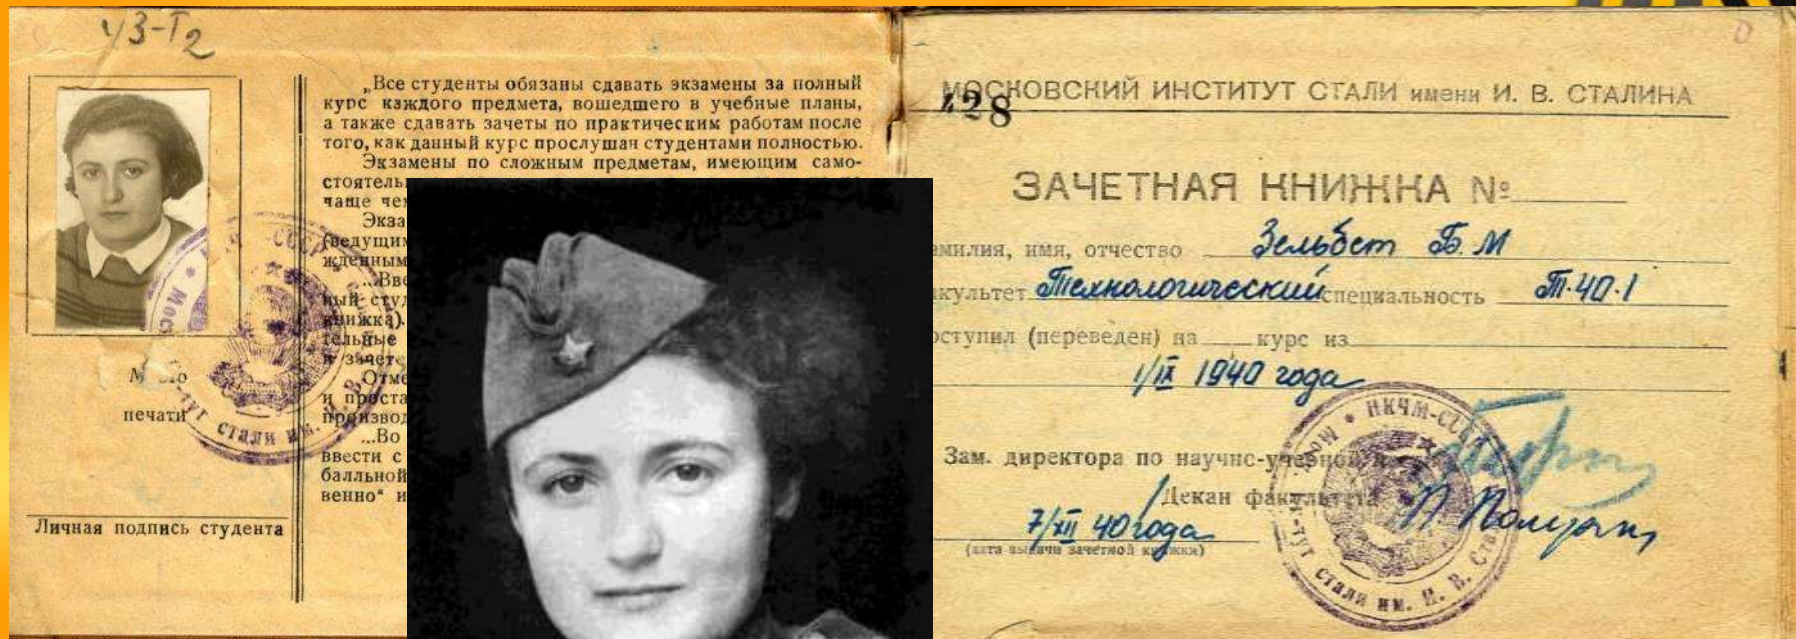 УЗ-Т2
„Все студенты обязаны сдавать экзамены за полный
курс каждого предмета, вошедшего в учебные планы,
а также сдавать зачеты по практическим работам после
того, как данный курс прослушан студентами полностью.
Экзамены по сложным предметам, имеющим само-
стоятель
чаще чем
Экза
(ведущим
жденным
...Вве
ный студ
книжка).
тельные
и зачет
Отме
и проста
производ
...Во
ввести с
балльной
венно" и
Место
печати
Личная подпись студента
МОСКОВСКИЙ ИНСТИТУТ СТАЛИ имени И. В. СТАЛИНА
428
ЗАЧЕТНАЯ КНИЖКА №
амилия, имя, отчество Зельбет Б. М
культет Технологический специальность Т-40-1
оступил (переведен) на курс из
1/IX 1940 года
Зам. директора по научно-учебной
Декан факультета
7/XII 40 года
(дата выдачи зачетной книжки)
НКЧМ-СССР
стали им. И. В.